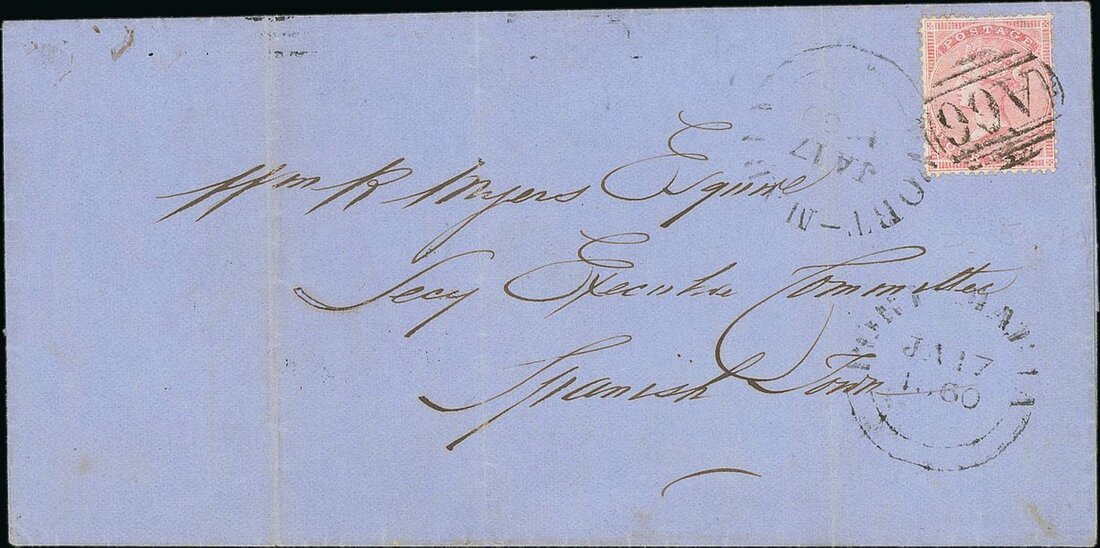 POSTAGE
A66
PORT-M
JA 17
Wm R Myers Esquire
Secy Executive Committee
Spanish Town
JA 17
1860